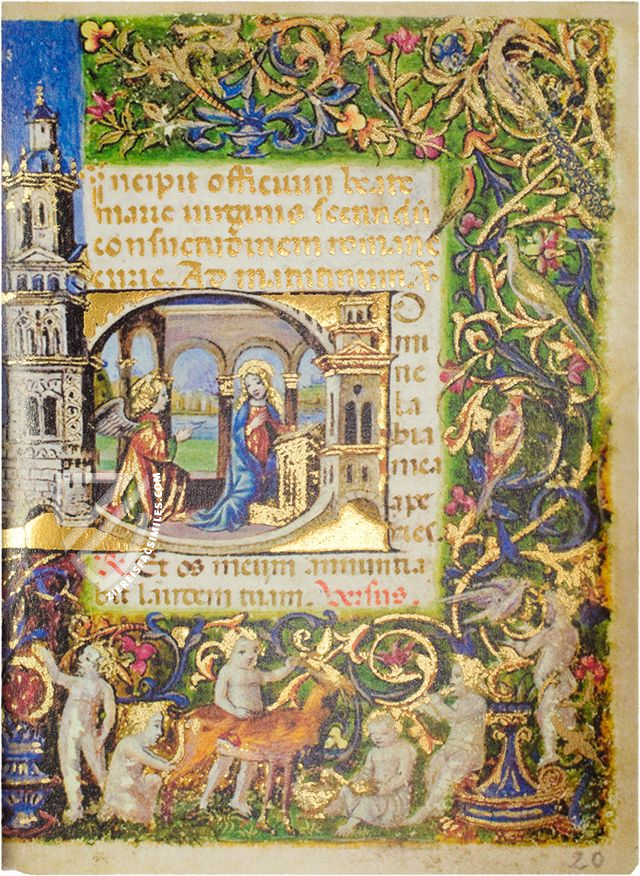 incipit officium beate
marie virginis secundū
consuetudinem romane
curie. Ad matutinum. V
Do
mi
ne
la
bia
mea
ape
ries.
R Et os meum annuntia
bit laudem tuam. Versus.
WWW.FACSIMILES.COM
20